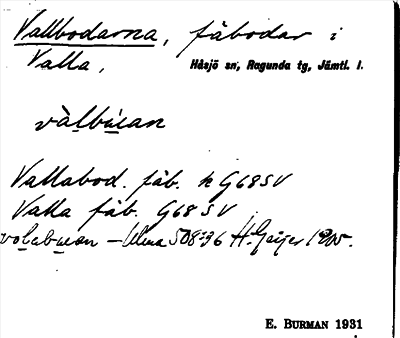 Vallbodarna, fäbodar i
Valla, Håsjö sn, Ragunda tg, Jämtl. l.
Vallabod. fäb. k G68SV
Valla fäb. G68SV
508:36 H. Geijer 1905.
E. BURMAN 1931